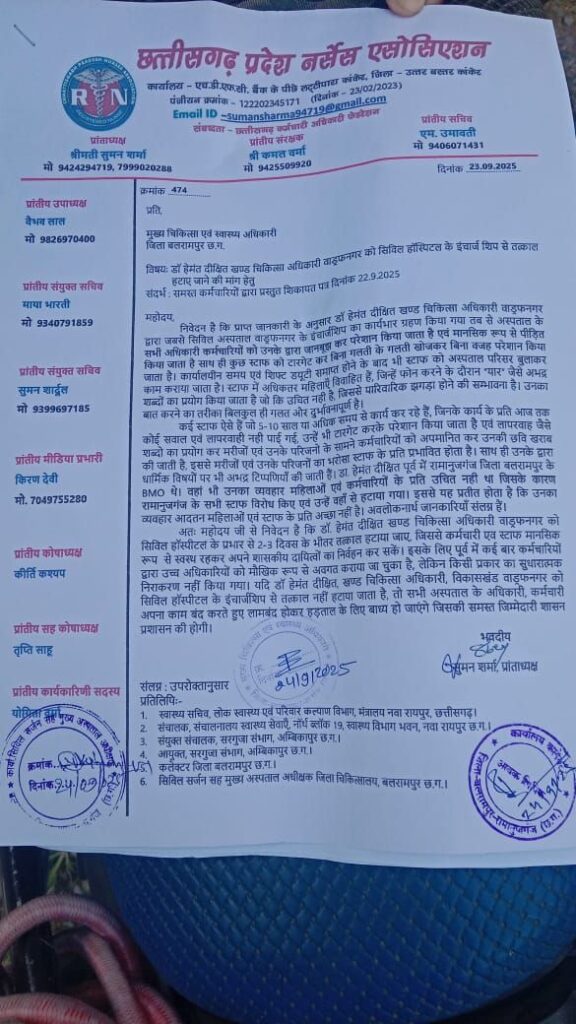 छत्तीसगढ़ प्रदेश नर्सेस एसोसिएशन
कार्यालय - एच.डी.एफ.सी. बैंक के पीछे लट्टीपारा कांकेर, जिला - उत्तर बस्तर कांकेर
पंजीयन क्रमांक - 122202345171 (दिनांक - 23/02/2023)
Email ID -sumansharma94719@gmail.com
संबध्दता - छत्तीसगढ़ कर्मचारी अधिकारी फेडरेशन
R N
प्रांताध्यक्ष
श्रीमती सुमन शर्मा
मो 9424294719, 7999020288
प्रांतीय संरक्षक
श्री कमल वर्मा
मो 9425509920
प्रांतीय सचिव
एम. उमावती
मो 9406071431
क्रमांक 474
दिनांक 23.09.2025
प्रांतीय उपाध्यक्ष
वैभव लाल
मो 9826970400
प्रांतीय संयुक्त सचिव
माया भारती
मो 9340791859
प्रांतीय संयुक्त सचिव
सुमन शार्दुल
मो 9399697185
प्रांतीय मीडिया प्रभारी
किरण देवी
मो. 7049755280
प्रांतीय कोषाध्यक्ष
कीर्ति कश्यप
प्रांतीय सह कोषाध्यक्ष
तृप्ति साहू
प्रांतीय कार्यकारिणी सदस्य
योगिता
प्रति,
मुख्य चिकित्सा एवं स्वास्थ्य अधिकारी
जिला बलरामपुर छ.ग.
विषयः डॉ हेमंत दीक्षित खण्ड चिकित्सा अधिकारी वाड्रफनगर को सिविल हॉस्पिटल के इंचार्ज शिप से तत्काल
हटाए जाने की मांग हेतु
संदर्भ : समस्त कर्मचारियों द्वारा प्रस्तुत शिकायत पत्र दिनांक 22.9.2025
महोदय,
निवेदन है कि प्राप्त जानकारी के अनुसार डॉ हेमंत दीक्षित खण्ड चिकित्सा अधिकारी वाड्रफनगर
द्वारा जबसे सिविल अस्पताल वाड्रफनगर के इंचार्जशिप का कार्यभार ग्रहण किया गया तब से अस्पताल के
सभी अधिकारी कर्मचारियों को उनके द्वारा जानबूझ कर परेशान किया जाता है एवं मानसिक रूप से पीड़ित
किया जाता है साथ ही कुछ स्टाफ को टारगेट कर बिना गलती के गलती खोजकर बिना वजह परेशान किया
जाता है। कार्यालयीन समय एवं शिफ्ट ड्यूटी समाप्त होने के बाद भी स्टाफ को अस्पताल परिसर बुलाकर
काम कराया जाता है। स्टाफ में अधिकतर महिलाएँ विवाहित हैं, जिन्हें फोन करने के दौरान "यार" जैसे अभद्र
शब्दों का प्रयोग किया जाता है जो कि उचित नही है, जिससे पारिवारिक झगड़ा होने की सम्भावना है। उनका
बात करने का तरीका बिलकुल ही गलत और दुर्भावनापूर्ण है।
कई स्टाफ ऐसे हैं जो 5-10 साल या अधिक समय से कार्य कर रहे हैं, जिनके कार्य के प्रति आज तक
कोई सवाल एवं लापरवाही नही पाई गई, उन्हें भी टारगेट करके परेशान किया जाता है एवं लापरवाह जैसे
शब्दों का प्रयोग कर मरीजों एवं उनके परिजनो के सामने कर्मचारियों को अपमानित कर उनकी छवि खराब
की जाती है, इससे मरीजों एवं उनके परिजनों का भरोसा स्टाफ के प्रति प्रभावित होता है। साथ ही उनके द्वारा
धार्मिक विषयों पर भी अभद्र टिप्पणियाँ की जाती है। डा. हेमंत दीक्षित पूर्व में रामानुजगंज जिला बलरामपुर के
BMO थे। वहां भी उनका व्यवहार महिलाओं एवं कर्मचारियों के प्रति उचित नही था जिसके कारण
रामानुजगंज के सभी स्टाफ विरोध किए एवं उन्हें वहाँ से हटाया गया। इससे यह प्रतीत होता है कि उनका
व्यवहार आदतन महिलाओं एवं स्टाफ के प्रति अच्छा नही है। अवलोकनार्थ जानकारियाँ संलग्न हैं।
अतः महोदय जी से निवेदन है कि डॉ. हेमंत दीक्षित खण्ड चिकित्सा अधिकारी वाड्रफनगर को
सिविल हॉस्पिटल के प्रभार से 2-3 दिवस के भीतर तत्काल हटाया जाए, जिससे कर्मचारी एवं स्टाफ मानसिक
रूप से स्वस्थ रहकर अपने शासकीय दायित्वों का निर्वहन कर सकें। इसके लिए पूर्व में कई बार कर्मचारियों
द्वारा उच्च अधिकारियों को मौखिक रूप से अवगत कराया जा चुका है, लेकिन किसी प्रकार का सुधारात्मक
निराकरण नहीं किया गया। यदि डॉ हेमंत दीक्षित, खण्ड चिकित्सा अधिकारी, विकासखंड वाड्रफनगर को
सिविल हॉस्पिटल के इंचार्जशिप से तत्काल नहीं हटाया जाता है, तो सभी अस्पताल के अधिकारी, कर्मचारी
अपना काम बंद करते हुए लामबंद होकर हड़ताल के लिए बाध्य हो जाएंगे जिसकी समस्त जिम्मेदारी शासन
प्रशासन की होगी।
भवदीय
सुमन शर्मा, प्रांताध्यक्ष
24/9/2025
संलग्न : उपरोक्तानुसार
प्रतिलिपिः-
1. स्वास्थ्य सचिव, लोक स्वास्थ्य एवं परिवार कल्याण विभाग, मंत्रालय नवा रायपुर, छत्तीसगढ़।
2. संचालक, संचालनालय स्वास्थ्य सेवाएँ, नॉर्थ ब्लॉक 19, स्वास्थ्य विभाग भवन, नवा रायपुर छ.ग.।
3. संयुक्त संचालक, सरगुजा संभाग, अम्बिकापुर छ.ग.।
4. आयुक्त, सरगुजा संभाग, अम्बिकापुर छ.ग.।
5. कलेक्टर जिला बलरामपुर छ.ग.।
6. सिविल सर्जन सह मुख्य अस्पताल अधीक्षक जिला चिकित्सालय, बलरामपुर छ.ग.।
कार्या. सिविल सर्जन सह मुख्य अस्पताल अधीक्षक
क्रमांक
दिनांक 24/09
कार्यालय
आवक लिपिक
जिला-बलरामपुर-रामानुजगंज (छ.ग.)